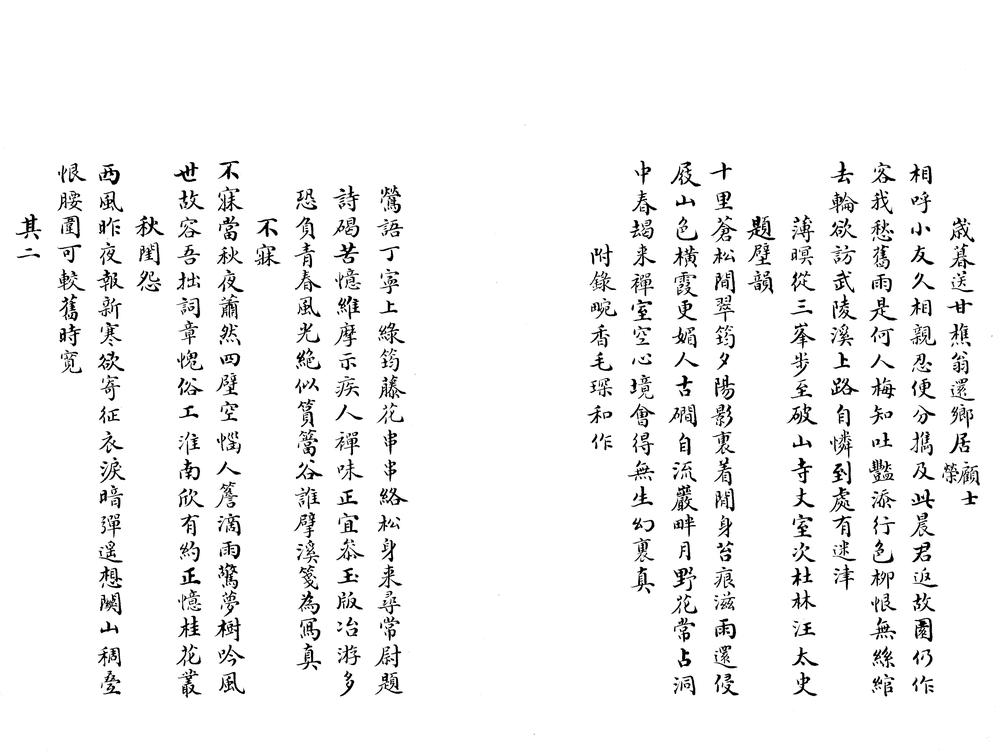 歲暮送甘樵翁還鄉居顧士榮
相呼小友久相親忍便分攜及此晨君返故園仍作
客我愁舊雨是何人梅知吐豔添行色柳恨無絲綰
去輪欲訪武陵溪上路自憐到處有迷津
薄暝從三峯步至破山寺丈室次杜林汪太史
題壁韻
十里蒼松間翠筠夕陽影裏着閒身苔痕滋雨還侵
屐山色橫霞更媚人古磵自流巖畔月野花常占洞
中春朅来禪室空心境會得無生幻裏真
附錄畹香毛琛和作
鶯語丁寧上綠筠藤花串串絡松身来尋常尉題
詩碣苦憶維摩示疾人禪味正宜叅玉版冶游多
恐負青春風光絶似篔簹谷誰擘溪箋為冩真
不寐
不寐當秋夜蕭然四壁空惱人簷滴雨驚夢樹吟風
世故容吾拙詞章愧俗工淮南欣有約正憶桂花叢
秋閨怨
西風昨夜報新寒欲寄征衣淚暗彈遥想關山稠疊
恨腰圍可較舊時寬
其二